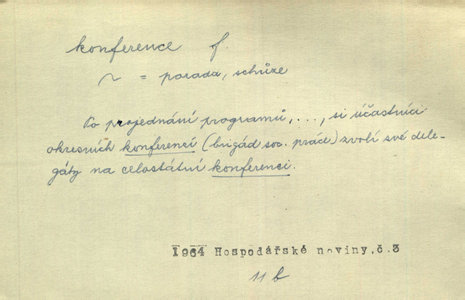 konference f.
~ = porada, schůze
Po projednání programů, ..., si účastníci
okresních konferencí (brigád soc. práce) zvolí své dele-
gáty na celostátní konferenci.
1964 Hospodářské noviny,č.3
11 b